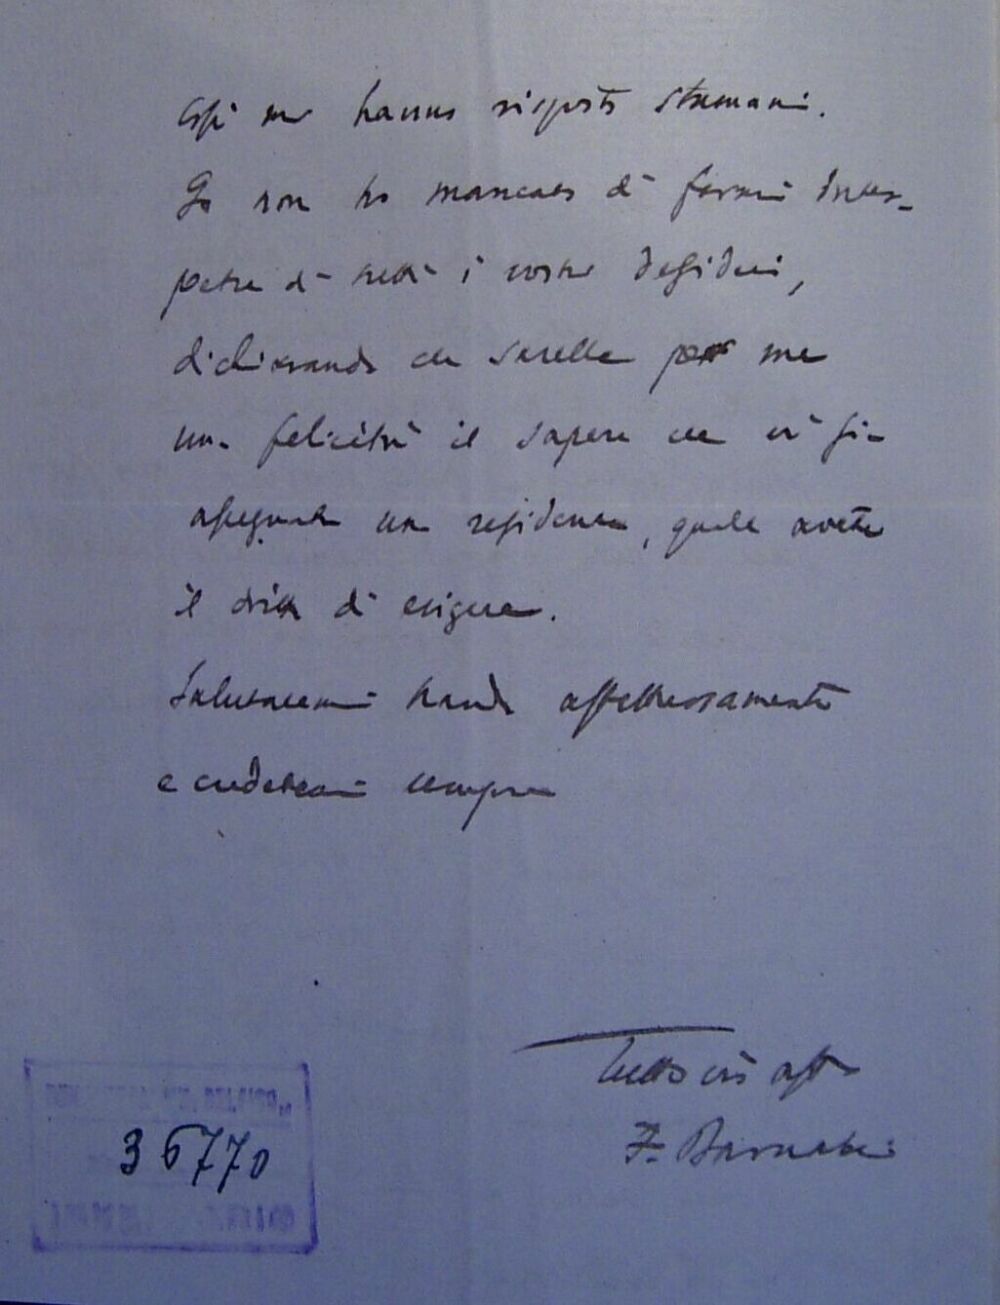 Essi mi hanno risposto stamani.
Io non ho mancato di farmi inter-
petre di tutti i vostri desiderii,
dichiarando che sarebbe per me
una felicità il sapere che vi sia
assegnata una residenza, quale avete
il dritto di esigere.
Salutatemi Nando affettuosamente
e credetemi sempre
Tutto vs aff
F. Barnabei
36770